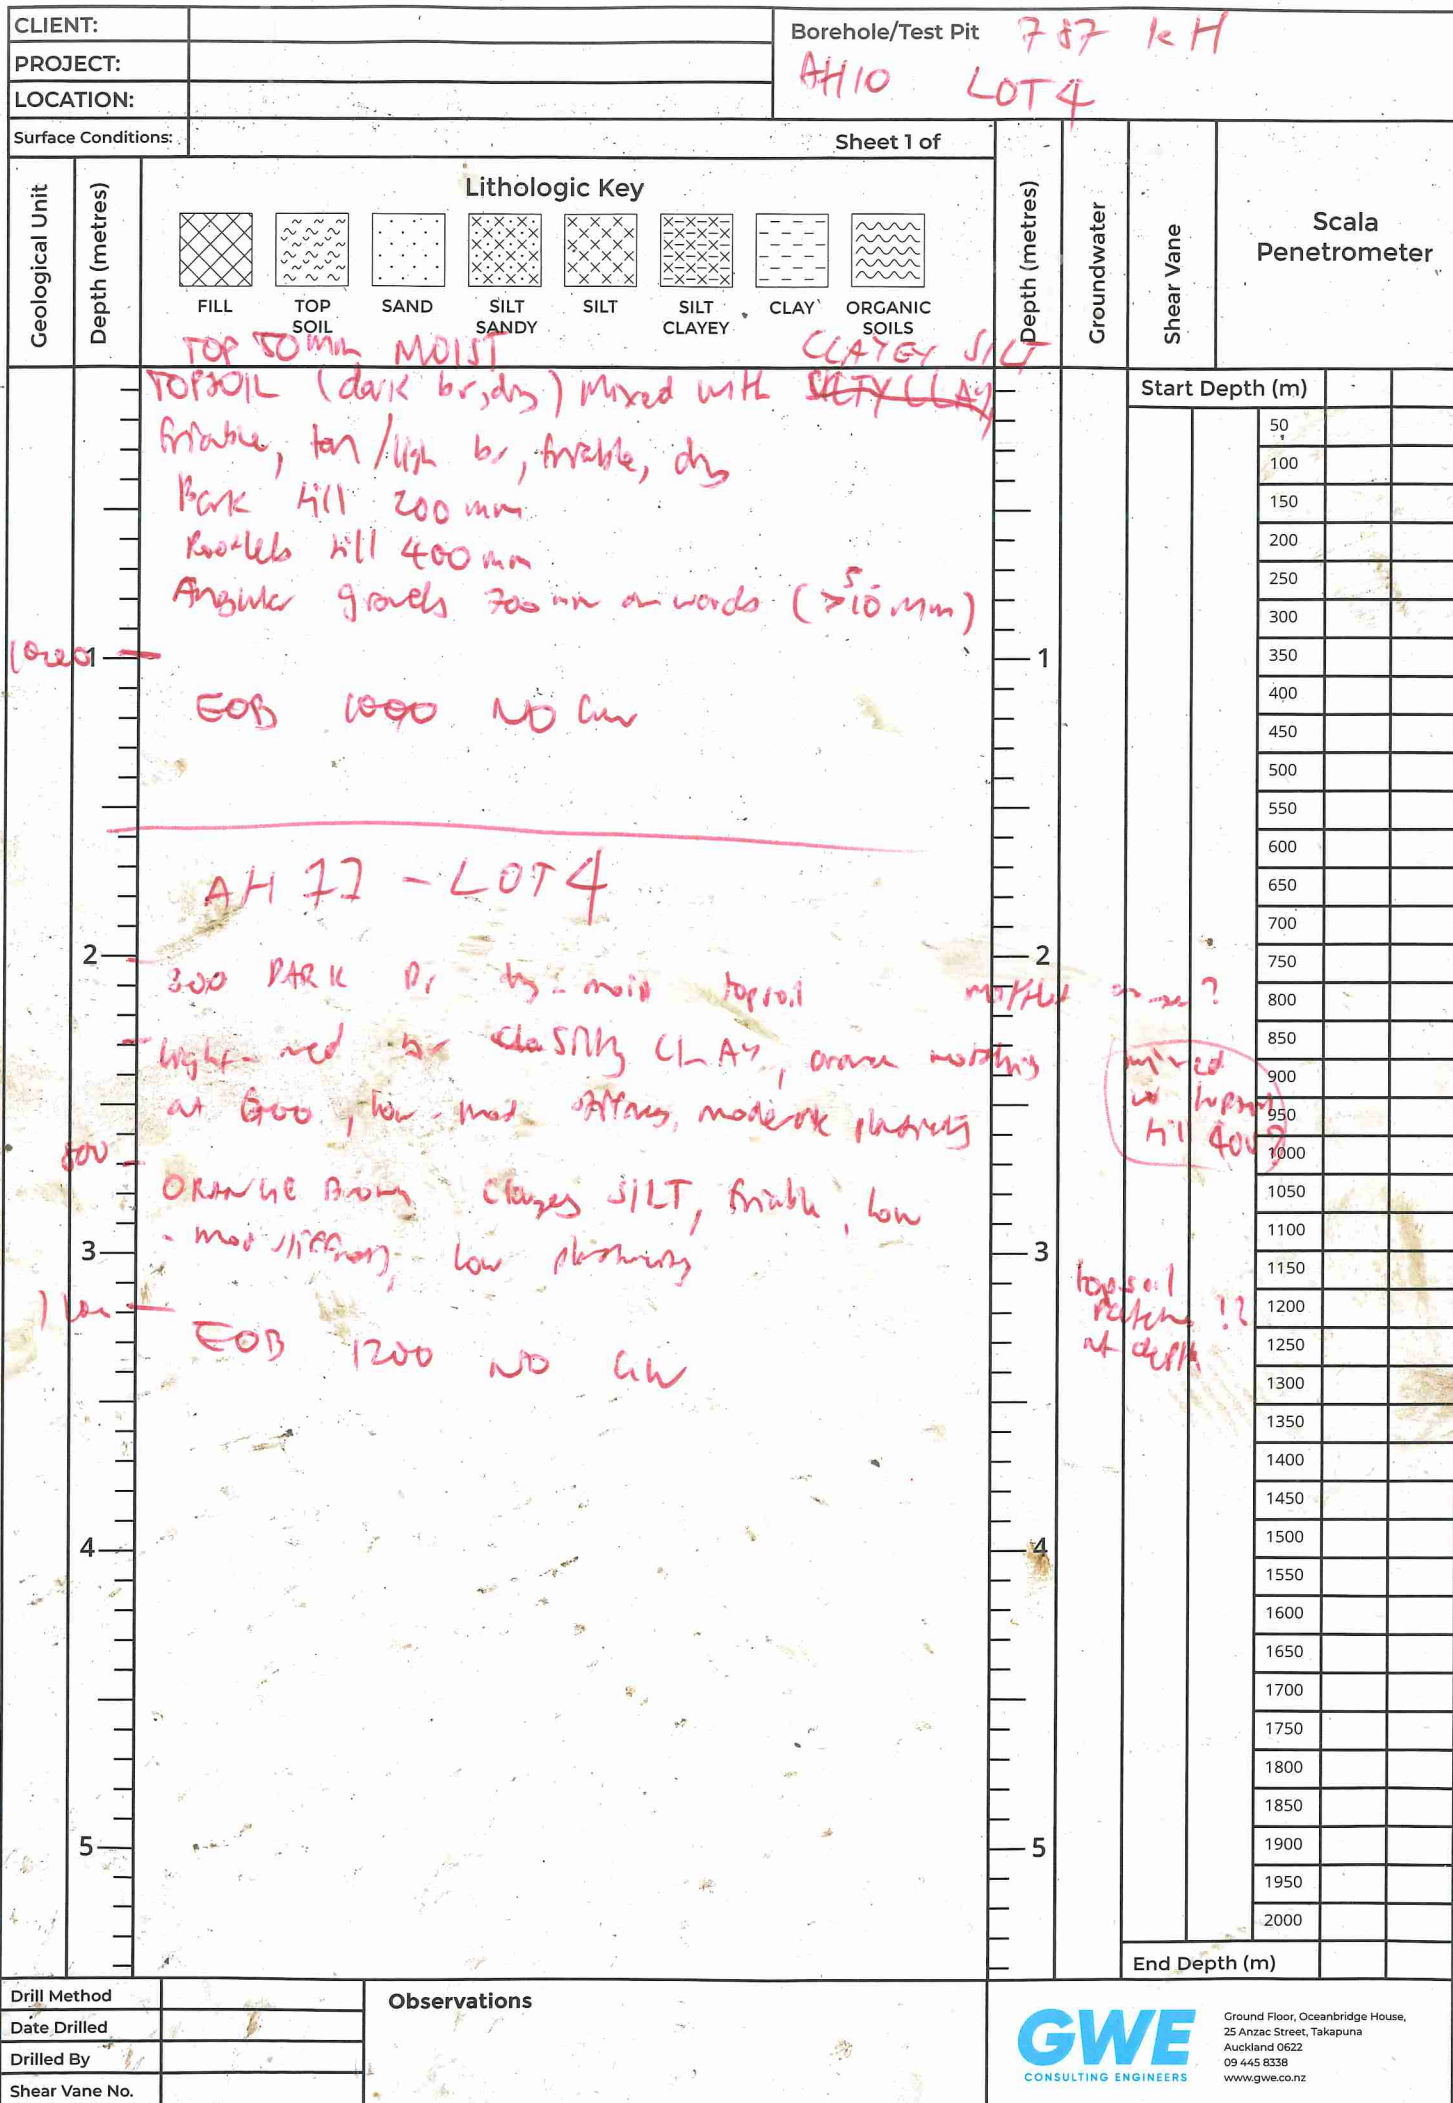 CLIENT:
PROJECT:
LOCATION:
Borehole/Test Pit 787 KH
AH10 LOT 4
Surface Conditions:
Sheet 1 of
Geological Unit
Depth (metres)
Lithologic Key
FILL
TOP SOIL
SAND
SILT SANDY
SILT
SILT CLAYEY
CLAY
ORGANIC SOILS
Depth (metres)
Groundwater
Shear Vane
Scala Penetrometer
TOP 50mm MOIST CLAYEY SILT
TOPSOIL (dark br, dry) Mixed with SILTY CLAY
friable, tan/ligh br, friable, dry
Bark till 200 mm
Rootlets till 400 mm
Angular gravels 700 mm onwards (>10 mm)
5
1000
EOB 1000 NO GW
AH 11 - LOT 4
300 DARK Br dry - moist topsoil
mottled
?
light - med br Silty CLAY, orange mottling
at 600, low - mod stiffness, moderate plasticity
mixed
w topsoil
till 400?
800
ORANGE Brown Clayey SILT, friable, low
- mod stiffness, low plasticity
topsoil
patches !?
at depth
EOB 1200 NO GW
1
2
3
4
5
1
2
3
4
5
Start Depth (m)
50
100
150
200
250
300
350
400
450
500
550
600
650
700
750
800
850
900
950
1000
1050
1100
1150
1200
1250
1300
1350
1400
1450
1500
1550
1600
1650
1700
1750
1800
1850
1900
1950
2000
End Depth (m)
Drill Method
Date Drilled
Drilled By
Shear Vane No.
Observations
GWE
CONSULTING ENGINEERS
Ground Floor, Oceanbridge House,
25 Anzac Street, Takapuna
Auckland 0622
09 445 8338
www.gwe.co.nz